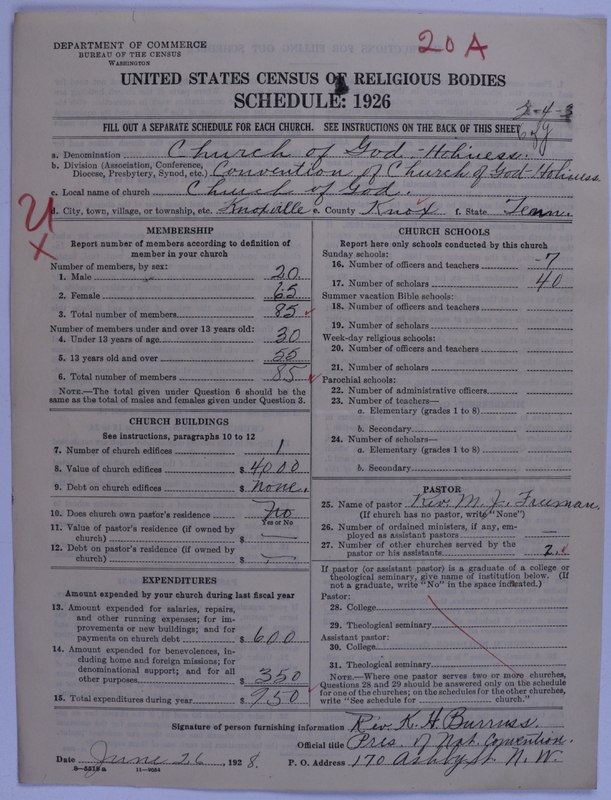 20A
DEPARTMENT OF COMMERCE
BUREAU OF THE CENSUS
WASHINGTON
UNITED STATES CENSUS OF RELIGIOUS BODIES
SCHEDULE: 1926
3-4-3
FILL OUT A SEPARATE SCHEDULE FOR EACH CHURCH. SEE INSTRUCTIONS ON THE BACK OF THIS SHEET
a. Denomination Church of God-Holiness.
b. Division (Association, Conference, Diocese, Presbytery, Synod, etc.) Convention of Church of God-Holiness
c. Local name of church Church of God.
d. City, town, village, or township, etc. Knoxville e. County Knox f. State Tenn.
MEMBERSHIP
Report number of members according to definition of
member in your church
Number of members, by sex:
1. Male 20
2. Female 65
3. Total number of members 85
Number of members under and over 13 years old:
4. Under 13 years of age 30
5. 13 years old and over 55
6. Total number of members 85
NOTE.—The total given under Question 6 should be
same as the total of males and females given under Question 3.
CHURCH BUILDINGS
See instructions, paragraphs 10 to 12
7. Number of church edifices 1
8. Value of church edifices $ 4000
9. Debt on church edifices $ None.
10. Does church own pastor's residence No
Yes or No
11. Value of pastor's residence (if owned by
church) $ —
12. Debt on pastor's residence (if owned by
church) $ —
EXPENDITURES
Amount expended by your church during last fiscal year
13. Amount expended for salaries, repairs,
and other running expenses; for im-
provements or new buildings; and for
payments on church debt $ 600
14. Amount expended for benevolences, in-
cluding home and foreign missions; for
denominational support; and for all
other purposes $ 350
15. Total expenditures during year $ 950
CHURCH SCHOOLS
Report here only schools conducted by this church
Sunday schools:
16. Number of officers and teachers 7
17. Number of scholars 40
Summer vacation Bible schools:
18. Number of officers and teachers
19. Number of scholars
Week-day religious schools:
20. Number of officers and teachers
21. Number of scholars
Parochial schools:
22. Number of administrative officers
23. Number of teachers—
a. Elementary (grades 1 to 8)
b. Secondary
24. Number of scholars—
a. Elementary (grades 1 to 8)
b. Secondary
PASTOR
25. Name of pastor Rev. M. J. Freeman.
(If church has no pastor, write "None")
26. Number of ordained ministers, if any, em-
ployed as assistant pastors —
27. Number of other churches served by the
pastor or his assistants 2
If pastor (or assistant pastor) is a graduate of a college or
theological seminary, give name of institution below. (If
not a graduate, write "No" in the space indicated.)
Pastor:
28. College
29. Theological seminary
Assistant pastor:
30. College
31. Theological seminary
NOTE.—Where one pastor serves two or more churches,
Questions 28 and 29 should be answered only on the schedule
for one of the churches; on the schedules for the other churches,
write "See schedule for church."
Signature of person furnishing information Rev. K. H. Burruss.
Official title Pres. of Nat. Convention.
Date June 26, 1928. P. O. Address 170 Ashby st. N. W.
8-5518a 11-9054